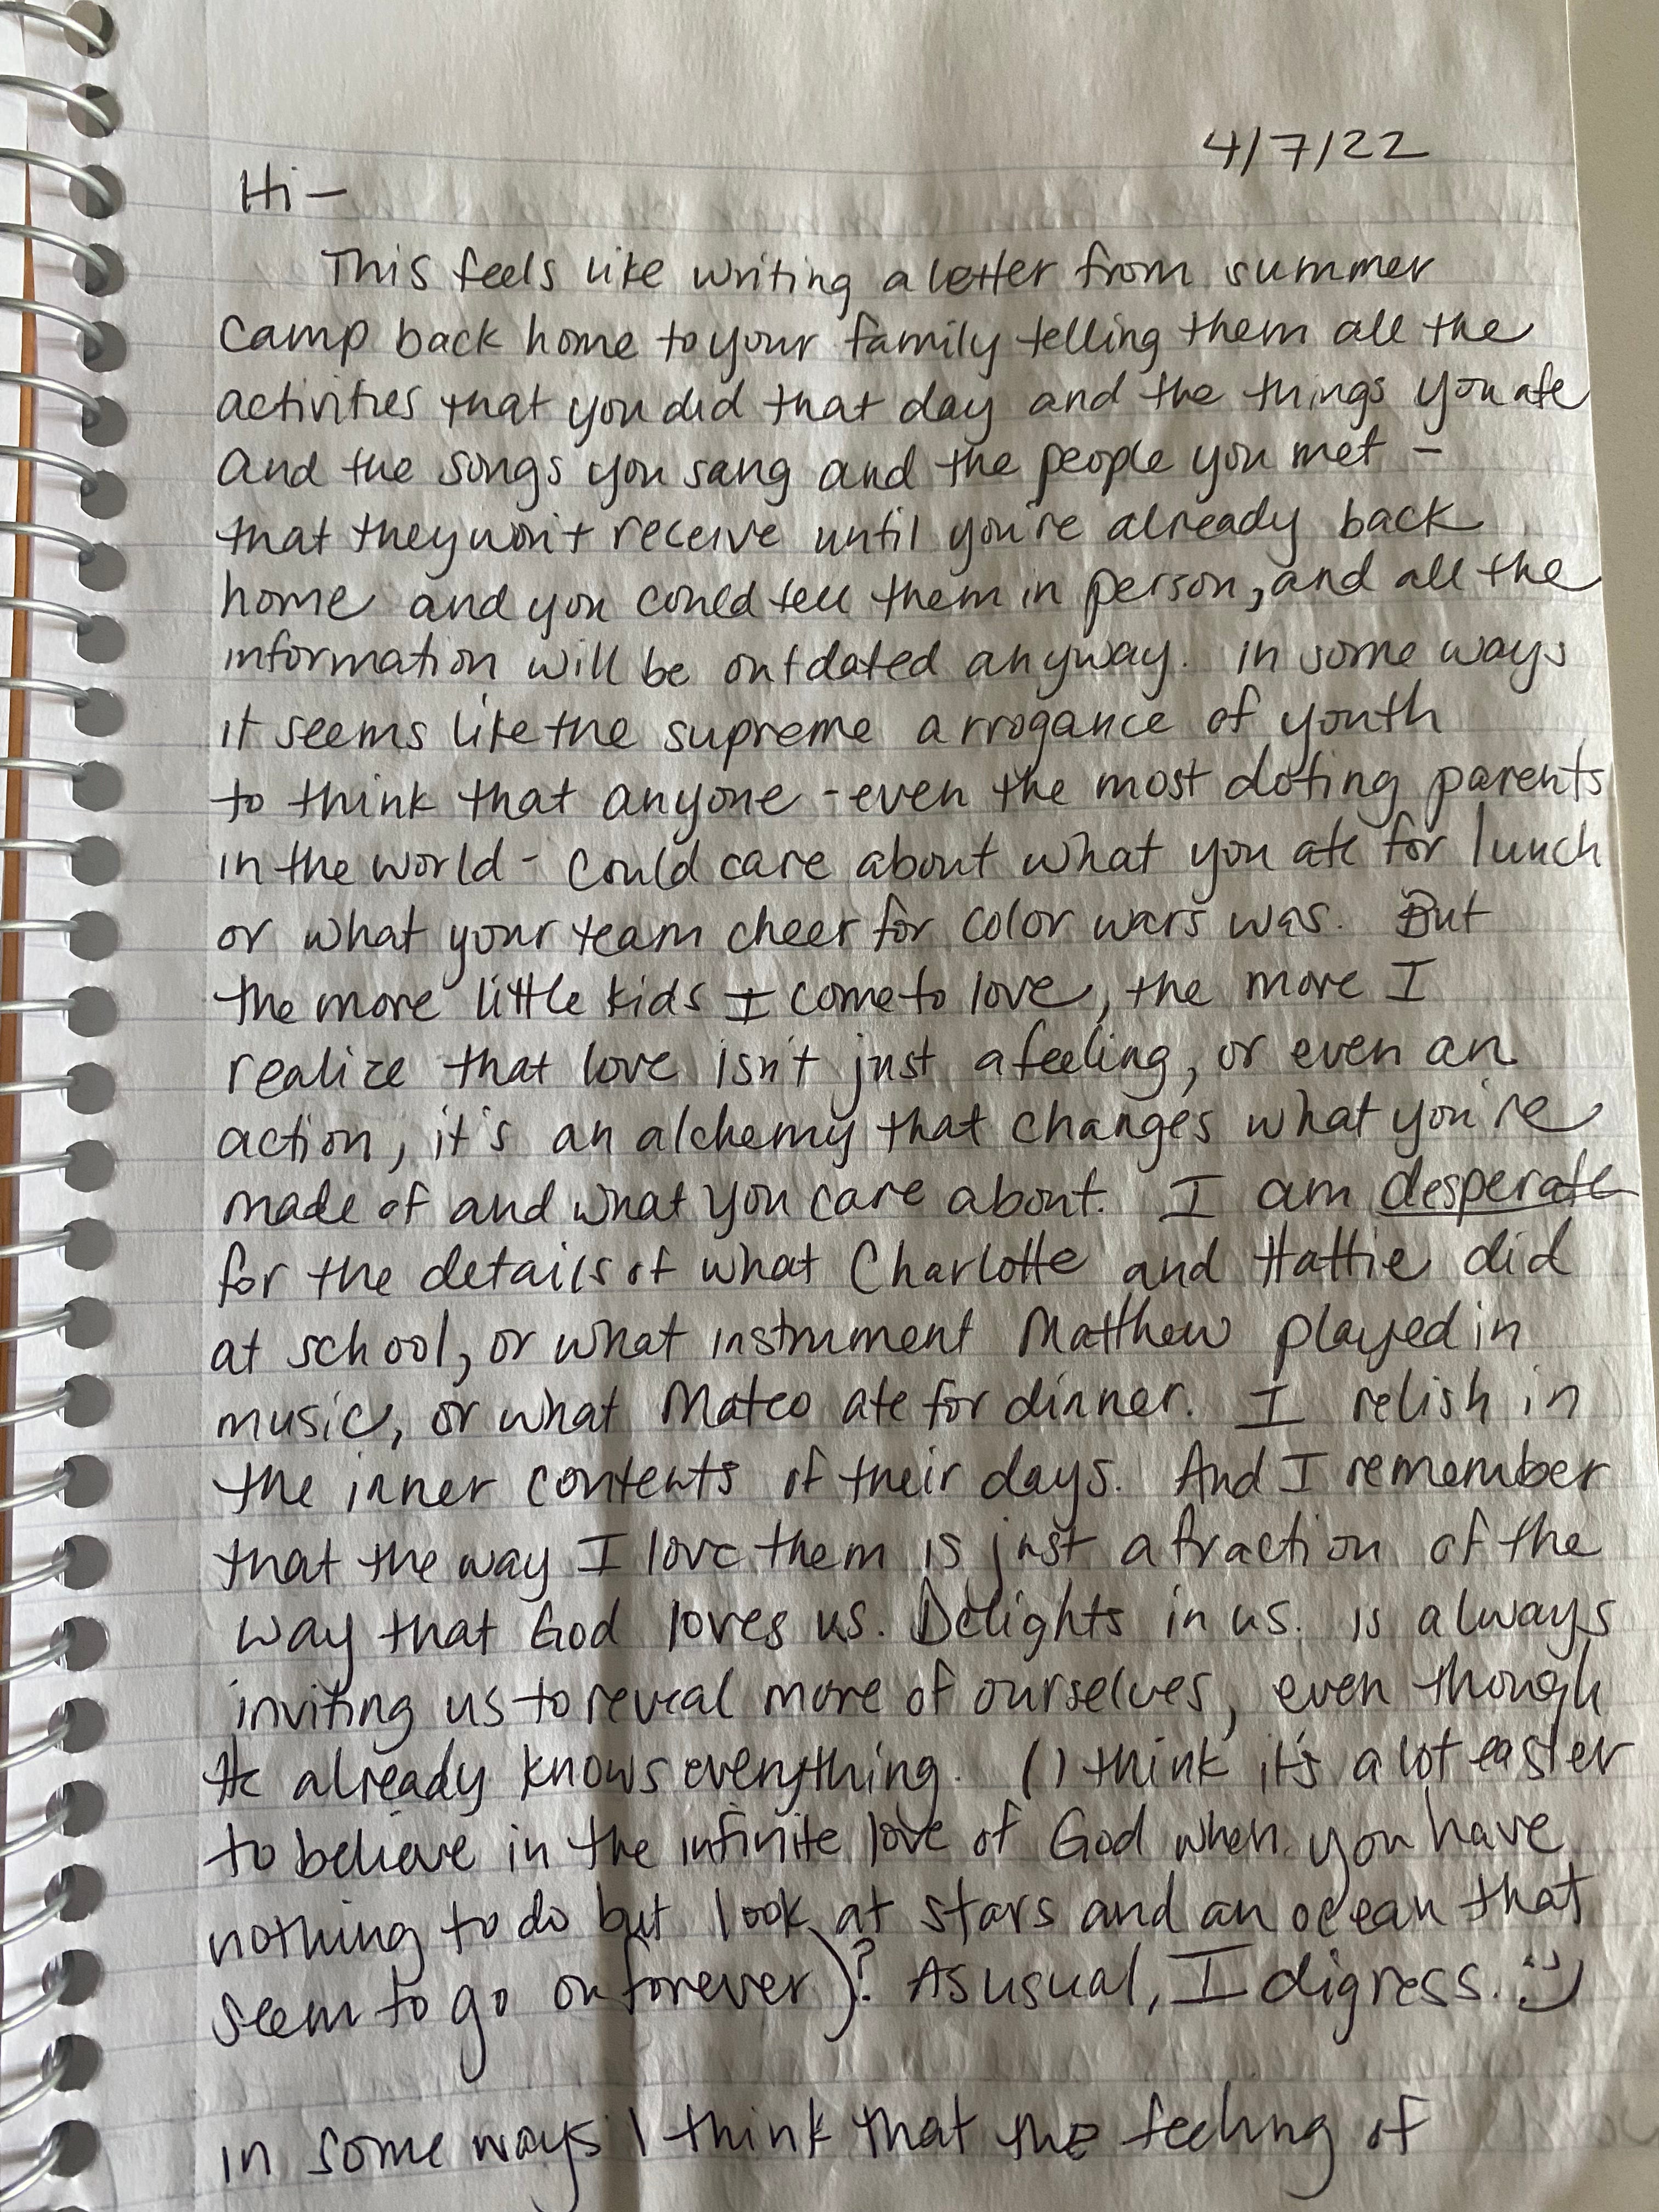 4/7/22
Hi –
This feels like writing a letter from summer
camp back home to your family telling them all the
activities that you did that day and the things you ate
and the songs you sang and the people you met –
that they won't receive until you're already back
home and you could tell them in person, and all the
information will be outdated anyway. In some ways
it seems like the supreme arrogance of youth
to think that anyone - even the most doting parents
in the world - could care about what you ate for lunch
or what your team cheer for color wars was. But
the more little kids I come to love, the more I
realize that love isn't just a feeling, or even an
action, it's an alchemy that changes what you're
made of and what you care about. I am desperate
for the details of what Charlotte and Hattie did
at school, or what instrument Matthew played in
music, or what Mateo ate for dinner. I relish in
the inner contents of their days. And I remember
that the way I love them is just a fraction of the
way that God loves us. Delights in us. Is always
inviting us to reveal more of ourselves, even though
He already knows everything. (I think it's a lot easier
to believe in the infinite love of God when you have
nothing to do but look at stars and an ocean that
seem to go on forever)? As usual, I digress. :)
In some ways I think that the feeling of